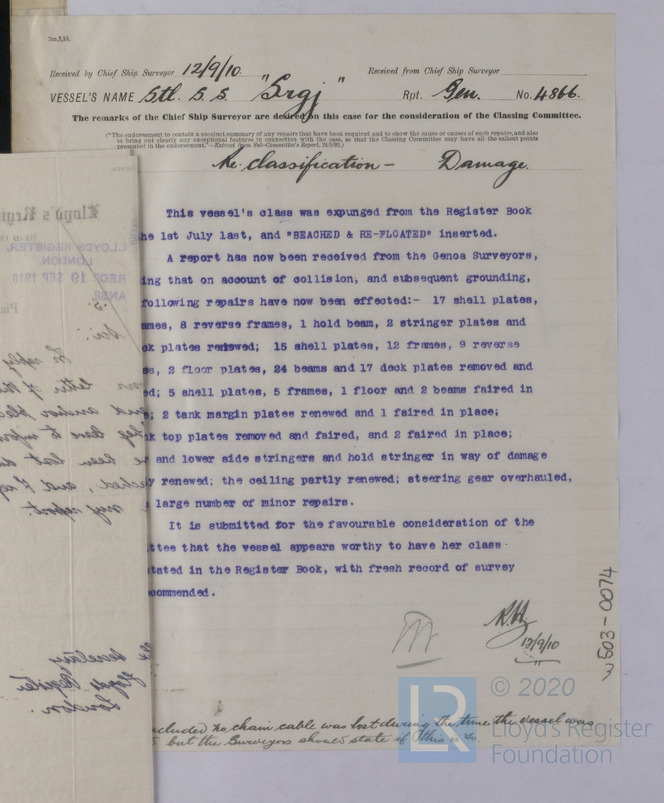 Received by Chief Ship Surveyor 12/9/10. Received from Chief Ship Surveyor
VESSEL'S NAME Stl. S.S. "Srgj" Rpt. Gen. No. 4866.
The remarks of the Chief Ship Surveyor are desired on this case for the consideration of the Classing Committee.
("The endorsement to contain a succinct summary of any repairs that have been required and to show the cause or causes of such repairs, and also
to bring out clearly any exceptional features in connection with the case, so that the Classing Committee may have all the salient points
presented in the endorsement."—Extract from Sub-Committee's Report,
Re-classification - Damage.
This vessel's class was expunged from the Register Book
he 1st July last, and "BEACHED & RE-FLOATED" inserted.
A report has now been received from the Genoa Surveyors,
ing that on account of collision, and subsequent grounding,
following repairs have now been effected:- 17 shell plates,
ames, 8 reverse frames, 1 hold beam, 2 stringer plates and
ck plates renewed; 15 shell plates, 12 frames, 9 reverse
es, 2 floor plates, 24 beams and 17 deck plates removed and
ed; 5 shell plates, 5 frames, 1 floor and 2 beams faired in
e; 2 tank margin plates renewed and 1 faired in place;
k top plates removed and faired, and 2 faired in place;
and lower side stringers and hold stringer in way of damage
y renewed; the ceiling partly renewed; steering gear overhauled,
large number of minor repairs.
It is submitted for the favourable consideration of the
ttee that the vessel appears worthy to have her class
tated in the Register Book, with fresh record of survey
commended.
12/9/10
603-0074
ncluded no chain cable was lost during the time the vessel was
but the Surveyors should state if this is so.
Lloyd's Regis
LLOYD'S REGISTER,
LONDON.
RECD 19 SEP 1910
ANSD
Sir
letter of
and anchor
beg leave to
been lost
and
my report.
Secretary
Lloyds Register
London.
LR
© 2020
Lloyd's Register
Foundation